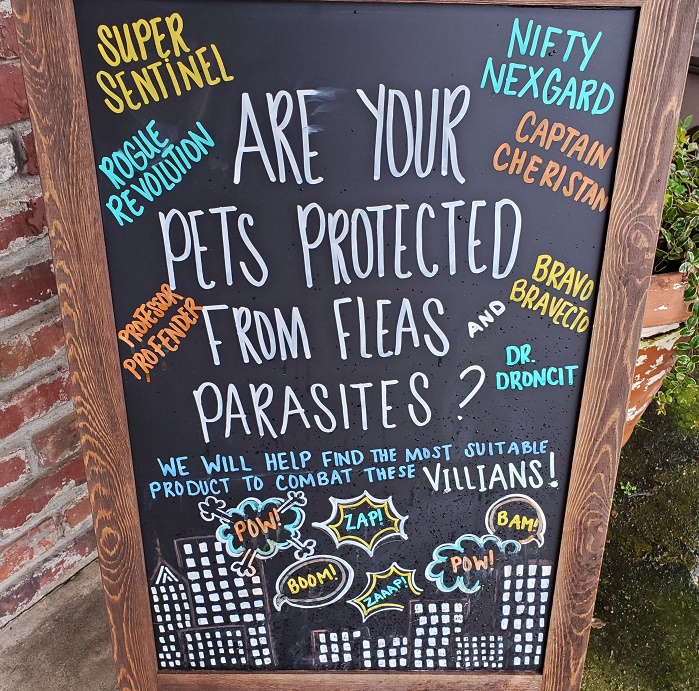 SUPER
SENTINEL
NIFTY
NEXGARD
ROGUE
REVOLUTION
CAPTAIN
CHERISTAN
ARE YOUR
PETS PROTECTED
FROM FLEAS AND
PARASITES ?
PROFESSOR
PROFENDER
BRAVO
BRAVECTO
DR.
DRONCIT
WE WILL HELP FIND THE MOST SUITABLE
PRODUCT TO COMBAT THESE VILLIANS!
POW!
ZAP!
BAM!
BOOM!
ZAAAP!
POW!